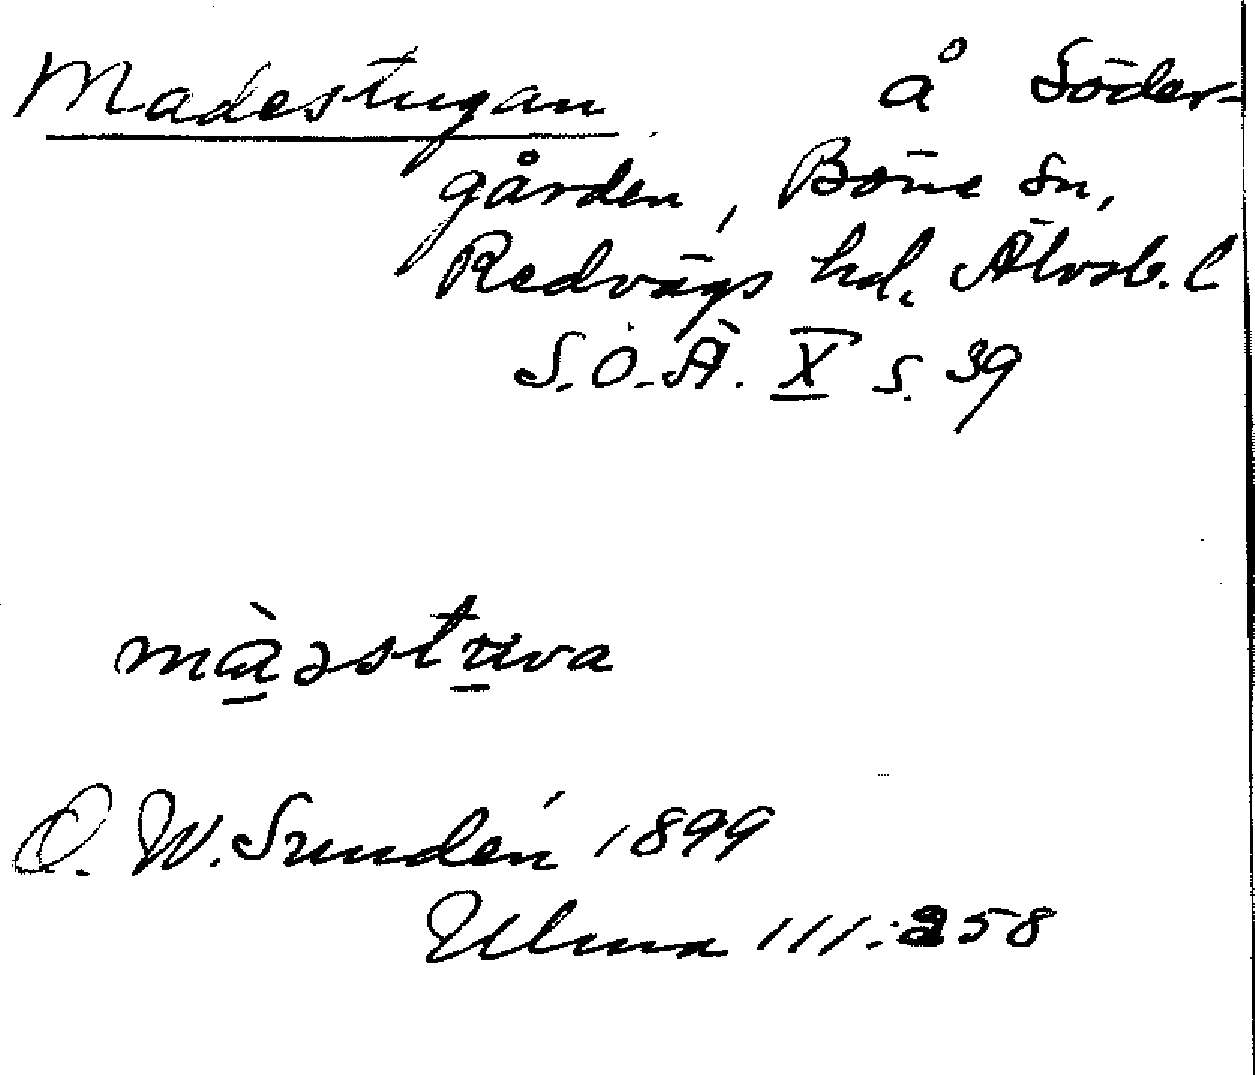 Madestugan å Söder-
gården, Böne sn,
Redvägs hd. Älvsb. l
S.O.Ä. X s. 39
mà̠əstu̠va
O. W. Sundén 1899
Ulma 111:258